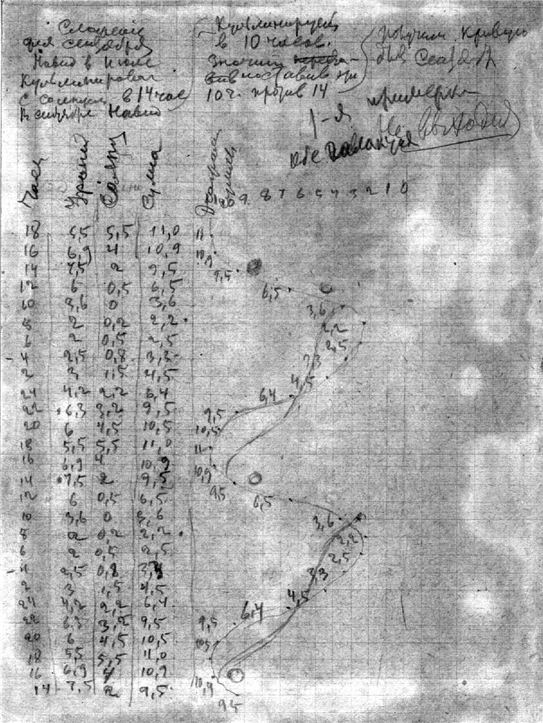 для сентября
Навид в Июле
Кульминировал
с солнцем в 14 час
В сентябре Навид
Кульминирует
в 10 часов.
Значит
10 ч. против 14
получим Кривую
для Сентября
примерно
1-я
Не
Часы
Сумма
9 8 7 6 5 4 3 2 1 0
18 5,5 5,5 11,0 11
16 6,9 4 10,9 10,9
14 7,5 2 9,5 9,5
12 6 0,5 6,5 6,5
10 3,6 0 3,6 3,6
8 2 0,2 2,2 2,2
6 2 0,5 2,5 2,5
4 2,5 0,8 3,3 3,3
2 3 1,5 4,5 4,5
24 4,2 2,2 6,4 6,4
22 6,3 3,2 9,5 9,5
20 6 4,5 10,5 10,5
18 5,5 5,5 11,0 11
16 6,9 4 10,9 10,9
14 7,5 2 9,5 9,5
12 6 0,5 6,5 6,5
10 3,6 0 3,6 3,6
8 2 0,2 2,2 2,2
6 2 0,5 2,5 2,5
4 2,5 0,8 3,3
2 3 1,5 4,5 4,5
24 4,2 2,2 6,4 6,4
22 6,3 3,2 9,5 9,5
20 6 4,5 10,5 10,5
18 5,5 5,5 11,0
16 6,9 4 10,9 10,9
14 7,5 2 9,5 9,5